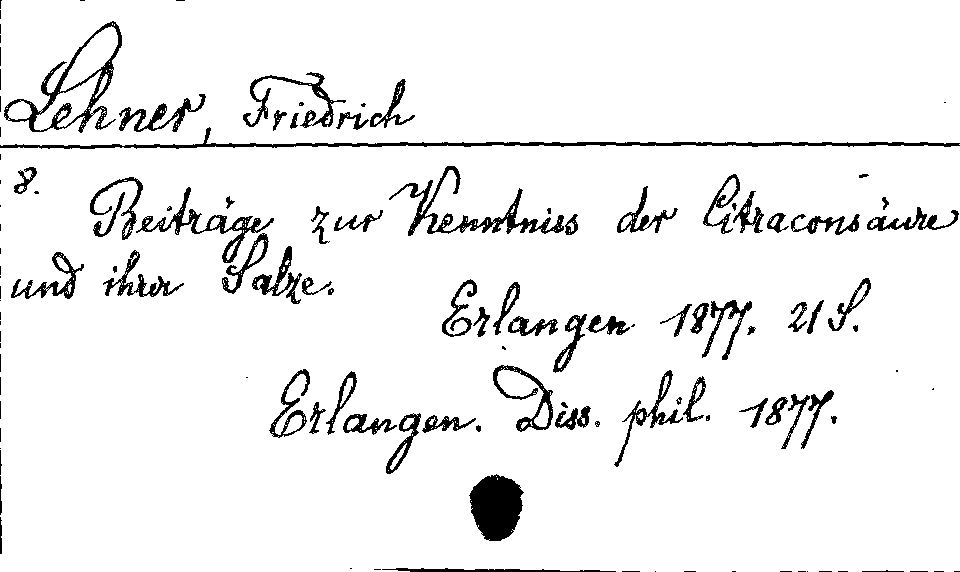 Lehner, Friedrich
8.
Beiträge zur Kenntniss der Citraconsäure
und ihrer Salze.
Erlangen 1877. 21 S.
Erlangen. Diss. phil. 1877.